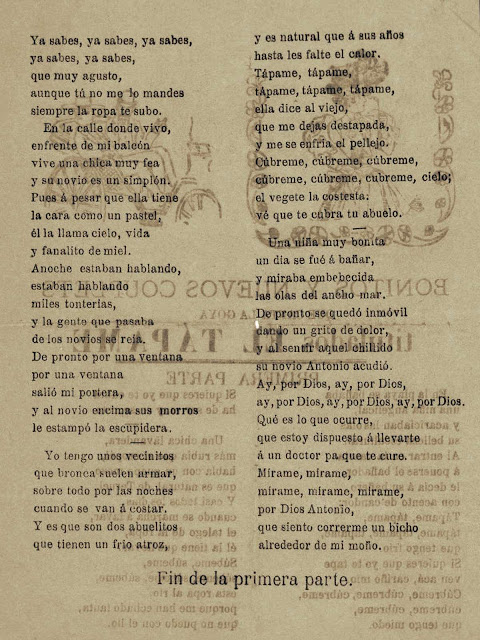 Ya sabes, ya sabes, ya sabes,
ya sabes, ya sabes,
que muy agusto,
aunque tú no me lo mandes
siempre la ropa te subo.
En la calle donde vivo,
enfrente de mi balcón
vive una chica muy fea
y su novio es un simplón.
Pues á pesar que ella tiene
la cara como un pastel,
él la llama cielo, vida
y fanalito de miel.
Anoche estaban hablando,
estaban hablando
miles tonterias,
y la gente que pasaba
de los novios se reía.
De pronto por una ventana
por una ventana
salió mi portera,
y al novio encima sus morros
le estampó la escupidera.
Yo tengo unos vecinitos
que bronca suelen armar,
sobre todo por las noches
cuando se van á costar.
Y es que son dos abuelitos
que tienen un frio atroz,
y es natural que á sus años
hasta les falte el calor.
Tápame, tápame,
tápame, tápame, tápame,
ella dice al viejo,
que me dejas destapada,
y me se enfría el pellejo.
Cúbreme, cúbreme, cúbreme,
cúbreme, cúbreme, cubreme, cielo;
el vegete la costesta:
vé que te cubra tu abuelo.
Una niña muy bonita
un dia se fué á bañar,
y miraba embebecida
las olas del ancho mar.
De pronto se quedó inmóvil
dando un grito de dolor,
y al sentir aquel chillido
su novio Antonio acudió.
Ay, por Dios, ay, por Dios,
ay, por Dios, ay, por Dios, ay, por Dios.
Qué es lo que ocurre,
que estoy dispuesto á llevarte
á un doctor pa que te cure.
Mírame, mírame,
mírame, mírame, mírame,
por Dios Antonio,
que siento correrme un bicho
alrededor de mi moño.
Fin de la primera parte.